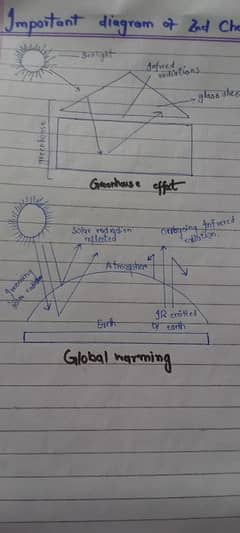 Important diagram of 2nd Ch
Sunlight
Infrred
radiations
glass shee
greenhouse
Greenhouse effect
Solar radiation
reflected
outgoing Infrared
radiation
Incoming
solar radiation
Atmosphere
Earth
IR emitted
by earth
Global warming